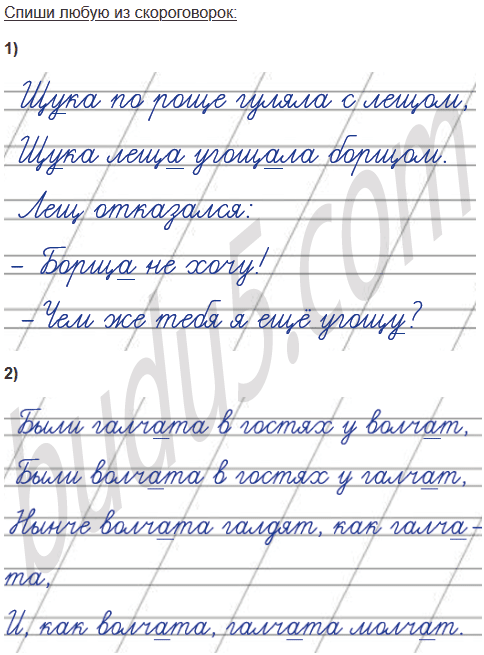 Спиши любую из скороговорок:
1)
Щука по роще гуляла с лещом,
Щука леща угощала борщом.
Лещ отказался:
– Борща не хочу!
– Чем же тебя я ещё угощу?
2)
Были галчата в гостях у волчат,
Были волчата в гостях у галчат,
Нынче волчата галдят, как галча-
та,
И, как волчата, галчата молчат.
budu5.com